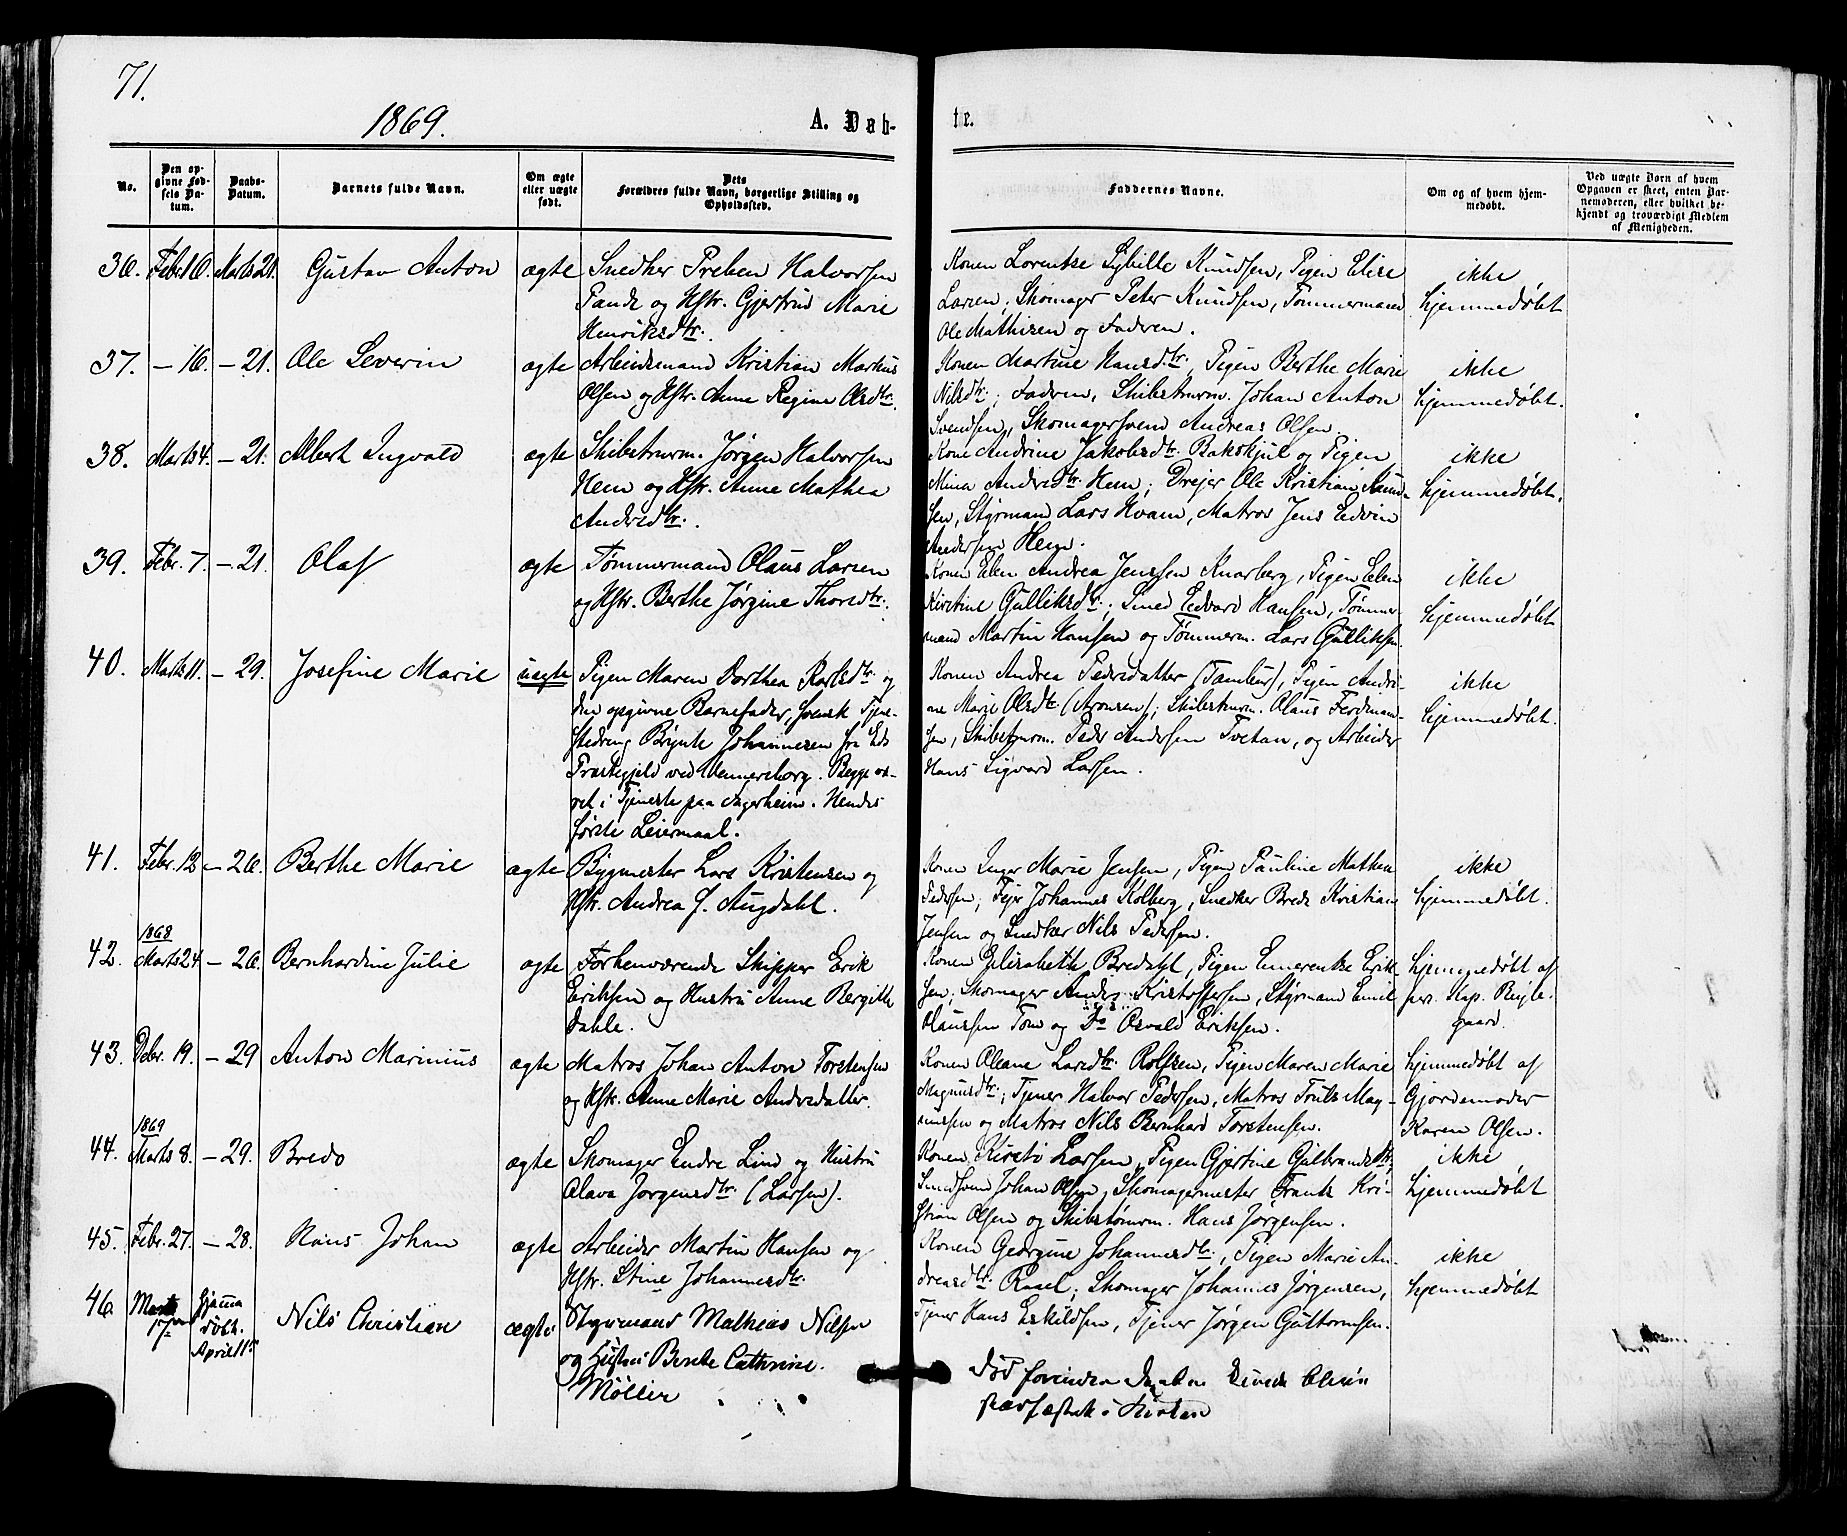 71.
1869.
A. Døb-
te.
No.
Den op-
givne Fød-
sels Da-
tum.
Daabs-
Datum.
Barnets fulde Navn.
Om ægte
eller uægte
født.
Dets
Forældres fulde Navn, borgerlige Stilling og
Opholdssted.
Faddernes Navne.
Om og af hvem hjem-
medøbt.
Ved uægte Børn af hvem
Opgaven er skeet, enten Bar-
nemoderen, eller hvilket be-
kjendt og troværdigt Medlem
af Menigheden.
36. Febr. 16. Marts 21. Gustav Anton ægte Snedker Preben Halvorsen
Pande og Hstr. Gjertrud Marie
Henriksdtr.
Konen Lorentse Sybille Knudsen, Pigen Elise
Larsen; Skomager Peter Knudsen, Tømmermand
Ole Mathisen og Faderen.
ikke
hjemmedøbt
37. – 16. – 21. Ole Severin ægte Arbeidsmand Kristian Markus
Olsen og Hstr. Anne Regine Olsdtr.
Konen Martine Hansdtr., Pigen Berthe Marie
Nilsdtr.; Faderen, Skibstmrm. Johan Anton
Svendsen, Skomagersvend Andreas Olsen.
ikke
hjemmedøbt.
38. Marts 4. – 21. Albert Ingvald ægte Skibstmrm. Jørgen Halvorsen
Hem og Hstr. Anne Mathea
Andrsdtr.
Kone Andrine Jakobsdtr. Bakskjul og Pigen
Mina Andrsdtr. Hem; Drejer Ole Kristian Amund-
sen, Styrmand Lars Kvam, Matros Jens Edvin
Andersen Hem.
ikke
hjemmedøbt.
39. Febr. 7. – 21. Olaf ægte Tømmermand Olaus Larsen
og Hstr. Berthe Jørgine Thorsdtr.
Konen Elen Andrea Jenssen Knarberg, Pigen Elen
Kirstine Gulliksdtr.; Smed Edvard Hansen, Tømmer-
mand Martin Hansen og Tømmerm. Lars Gulliksen.
ikke
hjemmedøbt
40. Marts 11. – 29. Josefine Marie uægte Pigen Maren Dorthea Karlsdtr. og
den opgivne Barnefader, svensk Tjene-
stedreng Brynte Johannesen fra Eds
Præstegjeld ved Wennersborg. Begge væ-
ret i Tjeneste paa Jagerheim. Hendes
første Leiermaal.
Konen Andrea Pedersdatter (Tambur), Pigen Andri-
ne Marie Olsdtr. (Aronsen); Skibstmrm. Olaus Ferdinan-
sen, Skibstmrm. Peder Andersen Tvetan, og Arbeider
Hans Sigvard Larsen.
ikke
hjemmedøbt.
41. Febr. 12 – 26. Berthe Marie ægte Bygmester Lars Kristensen og
Hstr. Andrea J. Augdahl.
Konen Inger Marie Jensen, Pigen Pauline Mathea
Pedersen; Fejer Johannes Kolberg, Snedker Brede Kristian
Jensen og Snedker Nils Pedersen.
ikke
hjemmedøbt.
1868
42. Marts 24 – 26. Bernhardine Julie ægte Forhenværende Skipper Erik
Eriksen og Hustru Anne Bergitte
Dahle.
Konen Elisabeth Bredahl, Pigen Emerentse Erik-
sen; Skomager Anders Kristoffersen, Styrmand Emil
Olaussen Tom og Do Osvald Eriksen.
hjemmedøbt af
pers. Kap. Bugle-
gaard.
43. Debr. 19. – 29 Anton Marinius ægte Matros Johan Anton Torstensen
og Hstr. Anne Marie Andrsdatter.
Konen Oleane Larsdtr. Rolfsen, Pigen Maren Marie
Magnusdtr.; Tjener Halvor Pedersen, Matros Truls Mag-
nussen og Matros Nils Bernhard Torstensen.
hjemmedøbt af
Gjordemoder
Karen Olsen.
1869
44. Marts 8. – 29. Bredo ægte Skomager Endre Lind og Hustru
Olava Jørgensdtr. (Larsen).
Konen Kirsti Larsen, Pigen Gjertine Gulbrandsdtr.
Smedsvend Johan Olsen, Skomagermester Frants Kri-
stian Olsen og Skibstømrm. Hans Jørgensen.
ikke
hjemmedøbt
45. Febr. 27. – 28. Hans Johan ægte Arbeider Martin Hansen og
Hstr. Stine Johannesdtr.
Konen Georgine Johannesdtr., Pigen Marie An-
dreasdtr. Rasel; Skomager Johannes Jørgensen,
Tjener Hans Eskildsen, Tjener Jørgen Guttormsen.
ikke
hjemmedøbt
46. Marts 17 Hjemme
døbt.
April 11 Nils Christian ægte Styrmand Mathias Nilsen
og Hustru Bende Cathrine
Møller
Død forinden Daaben
stadfæstet i Kirken